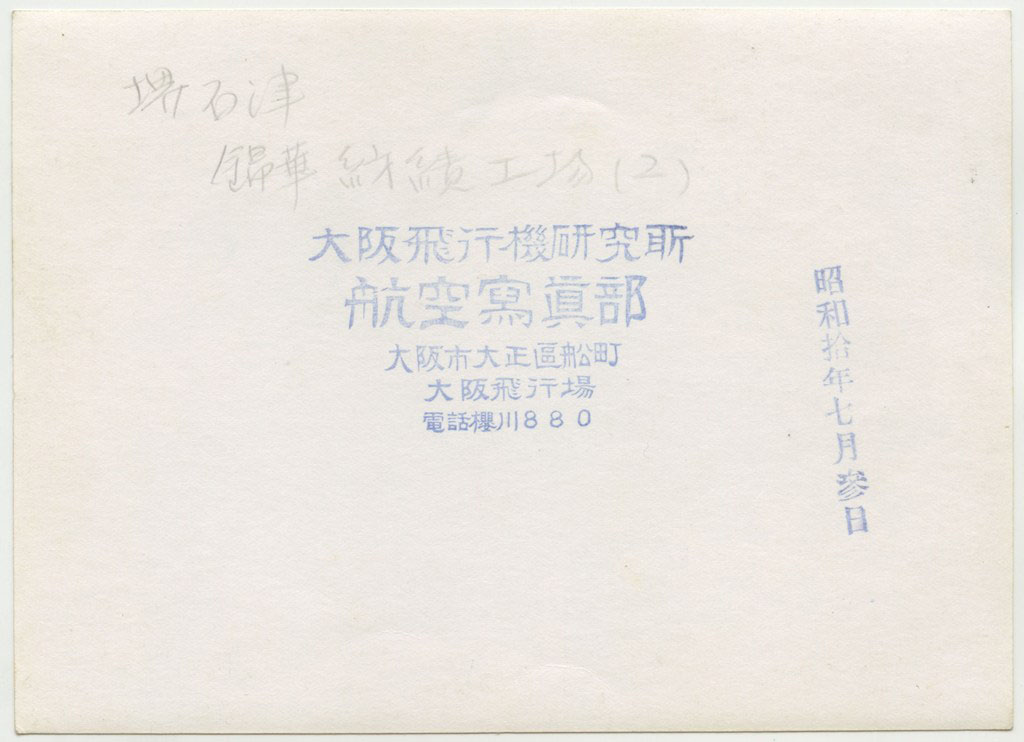 堺石津
錦華紡績工場(2)
大阪飛行機研究所
航空寫眞部
大阪市大正區船町
大阪飛行場
電話櫻川880
昭和拾年七月参日